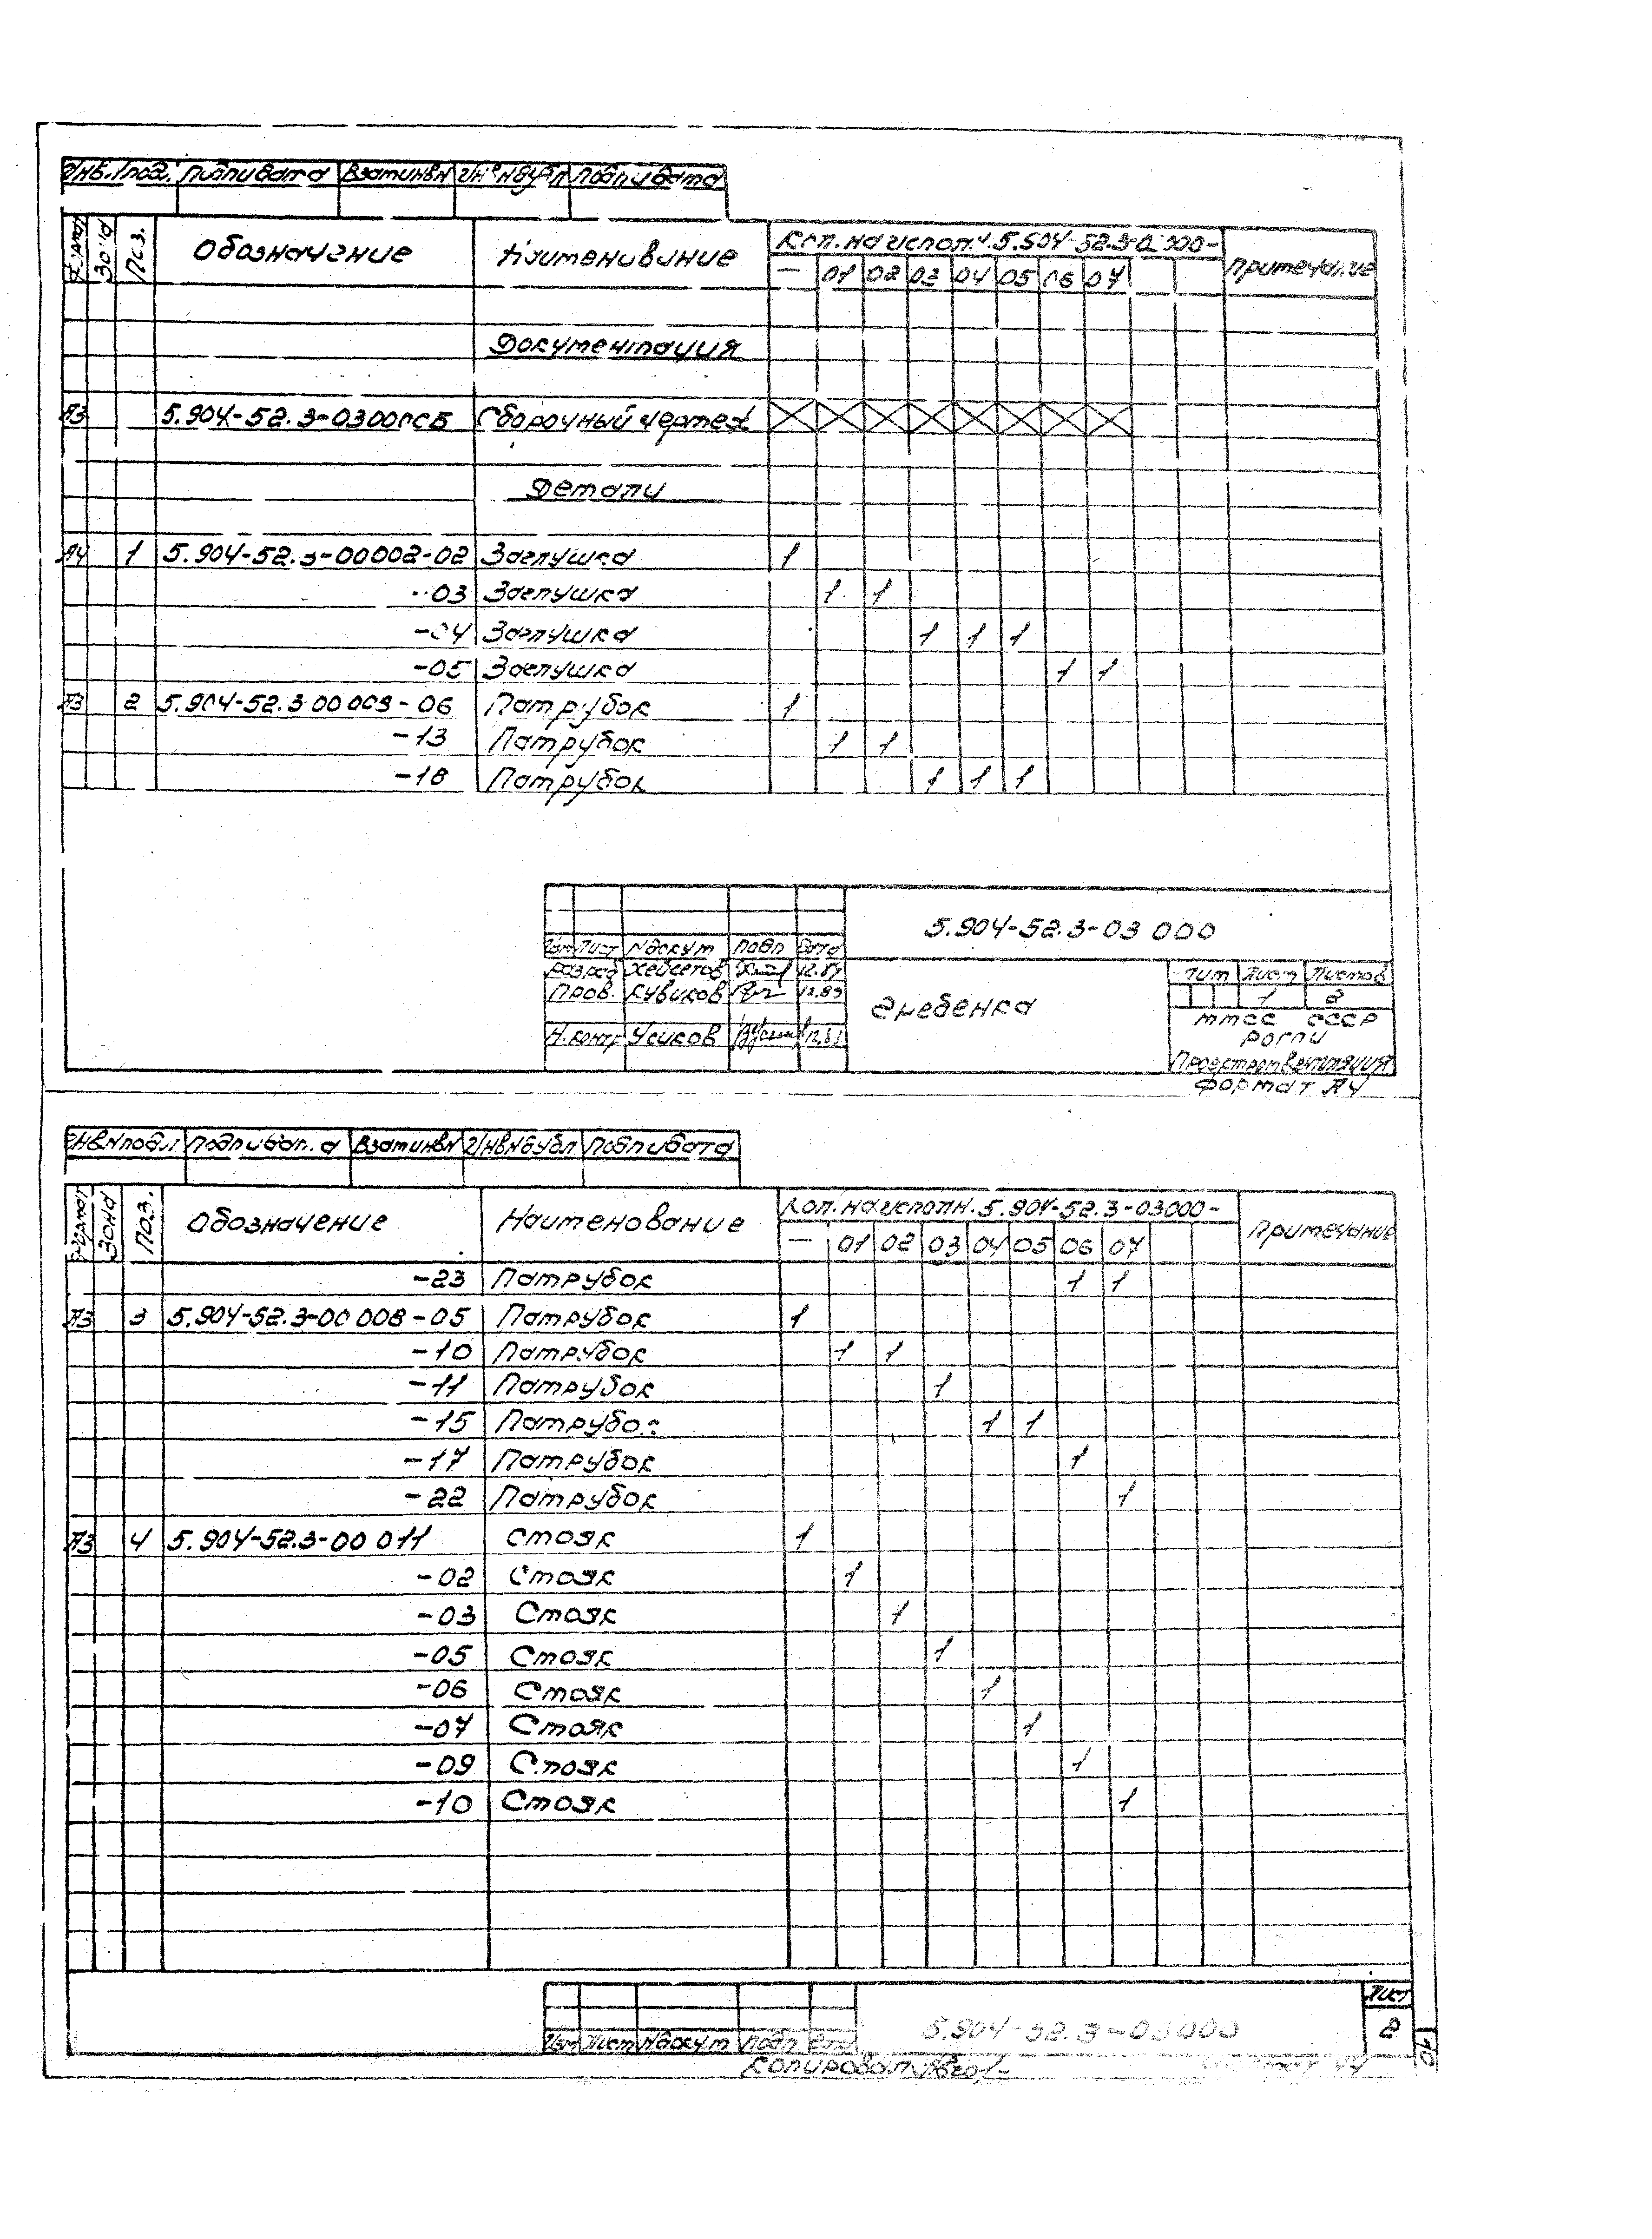 Инв.№ подл. Подпи дата Взам инв № Инв № дубл Подп и дата
Формат Зона Поз. Обозначение Наименование Кол. на исполн. 5.904-52.3-03000- Примечание
— 01 02 03 04 05 06 07
Документация
А3 5.904-52.3-03000СБ Сборочный чертеж
Детали
А4 1 5.904-52.3-00002-02 Заглушка 1
-03 Заглушка 1 1
-04 Заглушка 1 1 1
-05 Заглушка 1 1
А3 2 5.904-52.3-00 003-06 Патрубок 1
-13 Патрубок 1 1
-18 Патрубок 1 1 1
5.904-52.3-03 000
Изм Лист № докум Подп Дата
Разраб Хейсетов 12.89
Пров. Кувиков 12.89
Н.контр Усиков 12.89
Гребенка
Лит Лист Листов
1 2
ММСС СССР
РОГПИ
Проектпромвентиляция
Формат А4
Инв № подл Подп и дата Взам инв № Инв № дубл Подп и дата
Формат Зона Поз. Обозначение Наименование Кол. на исполн. 5.904-52.3-03000- Примечание
— 01 02 03 04 05 06 07
-23 Патрубок 1 1
А3 3 5.904-52.3-00 008-05 Патрубок 1
-10 Патрубок 1 1
-11 Патрубок 1
-15 Патрубок 1 1
-17 Патрубок 1
-22 Патрубок 1
А3 4 5.904-52.3-00 011 Стояк 1
-02 Стояк 1
-03 Стояк 1
-05 Стояк 1
-06 Стояк 1
-07 Стояк 1
-09 Стояк 1
-10 Стояк 1
Изм Лист № докум Подп Дата
5.904-52.3-03000
Лист
2
Копировал
Формат А4
10